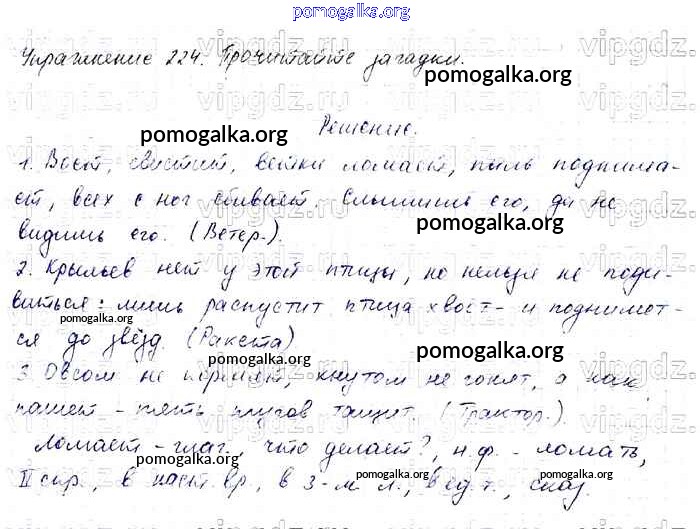 pomogalka.org
Упражнение 224. Прочитайте загадки.
pomogalka.org
Решение.
pomogalka.org
1. Воет, свистит, ветки ломает, пыль поднима-
ет, всех с ног сбивает. Слышишь его, да не
pomogalka.org
видишь его. (Ветер.).
2. Крыльев нет у этой птицы, но нельзя не поди-
виться: лишь распустит птица хвост - и поднимет-
pomogalka.org
pomogalka.org
ся до звёзд. (Ракета)
pomogalka.org
pomogalka.org
3. Овсом не кормят, кнутом не гонят, а как
pomogalka.org
пашет - пять плугов тащит. (Трактор.).
Ломает - глаг., что делает?, н.ф. - ломать,
pomogalka.org
II спр., в наст. вр., в 3-м л., в ед.ч., сказ.
pomogalka.org
pomogalka.org
pomogalka.org